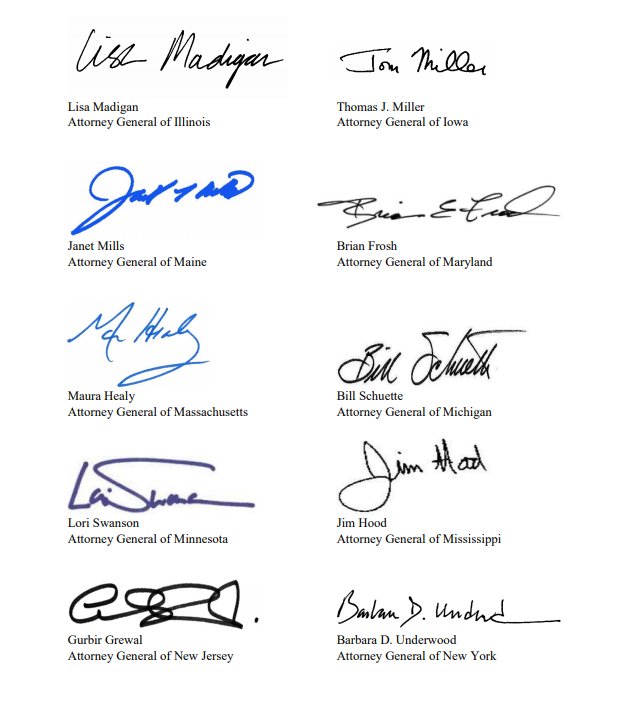 Lisa Madigan Tom Miller
Lisa Madigan Thomas J. Miller
Attorney General of Illinois Attorney General of Iowa
Janet Mills Brian E Frosh
Janet Mills Brian Frosh
Attorney General of Maine Attorney General of Maryland
Healy Bill Schuette
Maura Healy Bill Schuette
Attorney General of Massachusetts Attorney General of Michigan
Lori Swanson Jim Hood
Lori Swanson Jim Hood
Attorney General of Minnesota Attorney General of Mississippi
Barbara D. Underwood
Gurbir Grewal Barbara D. Underwood
Attorney General of New Jersey Attorney General of New York